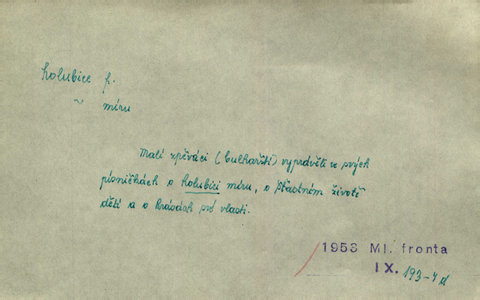 holubice f.
~ míru
Malí zpěváci (bulharští) vyprávěli ve svých
písničkách o holubici míru, o šťastném životě
dětí a o krásách své vlasti.
1953 Ml. fronta
IX. 193-4d